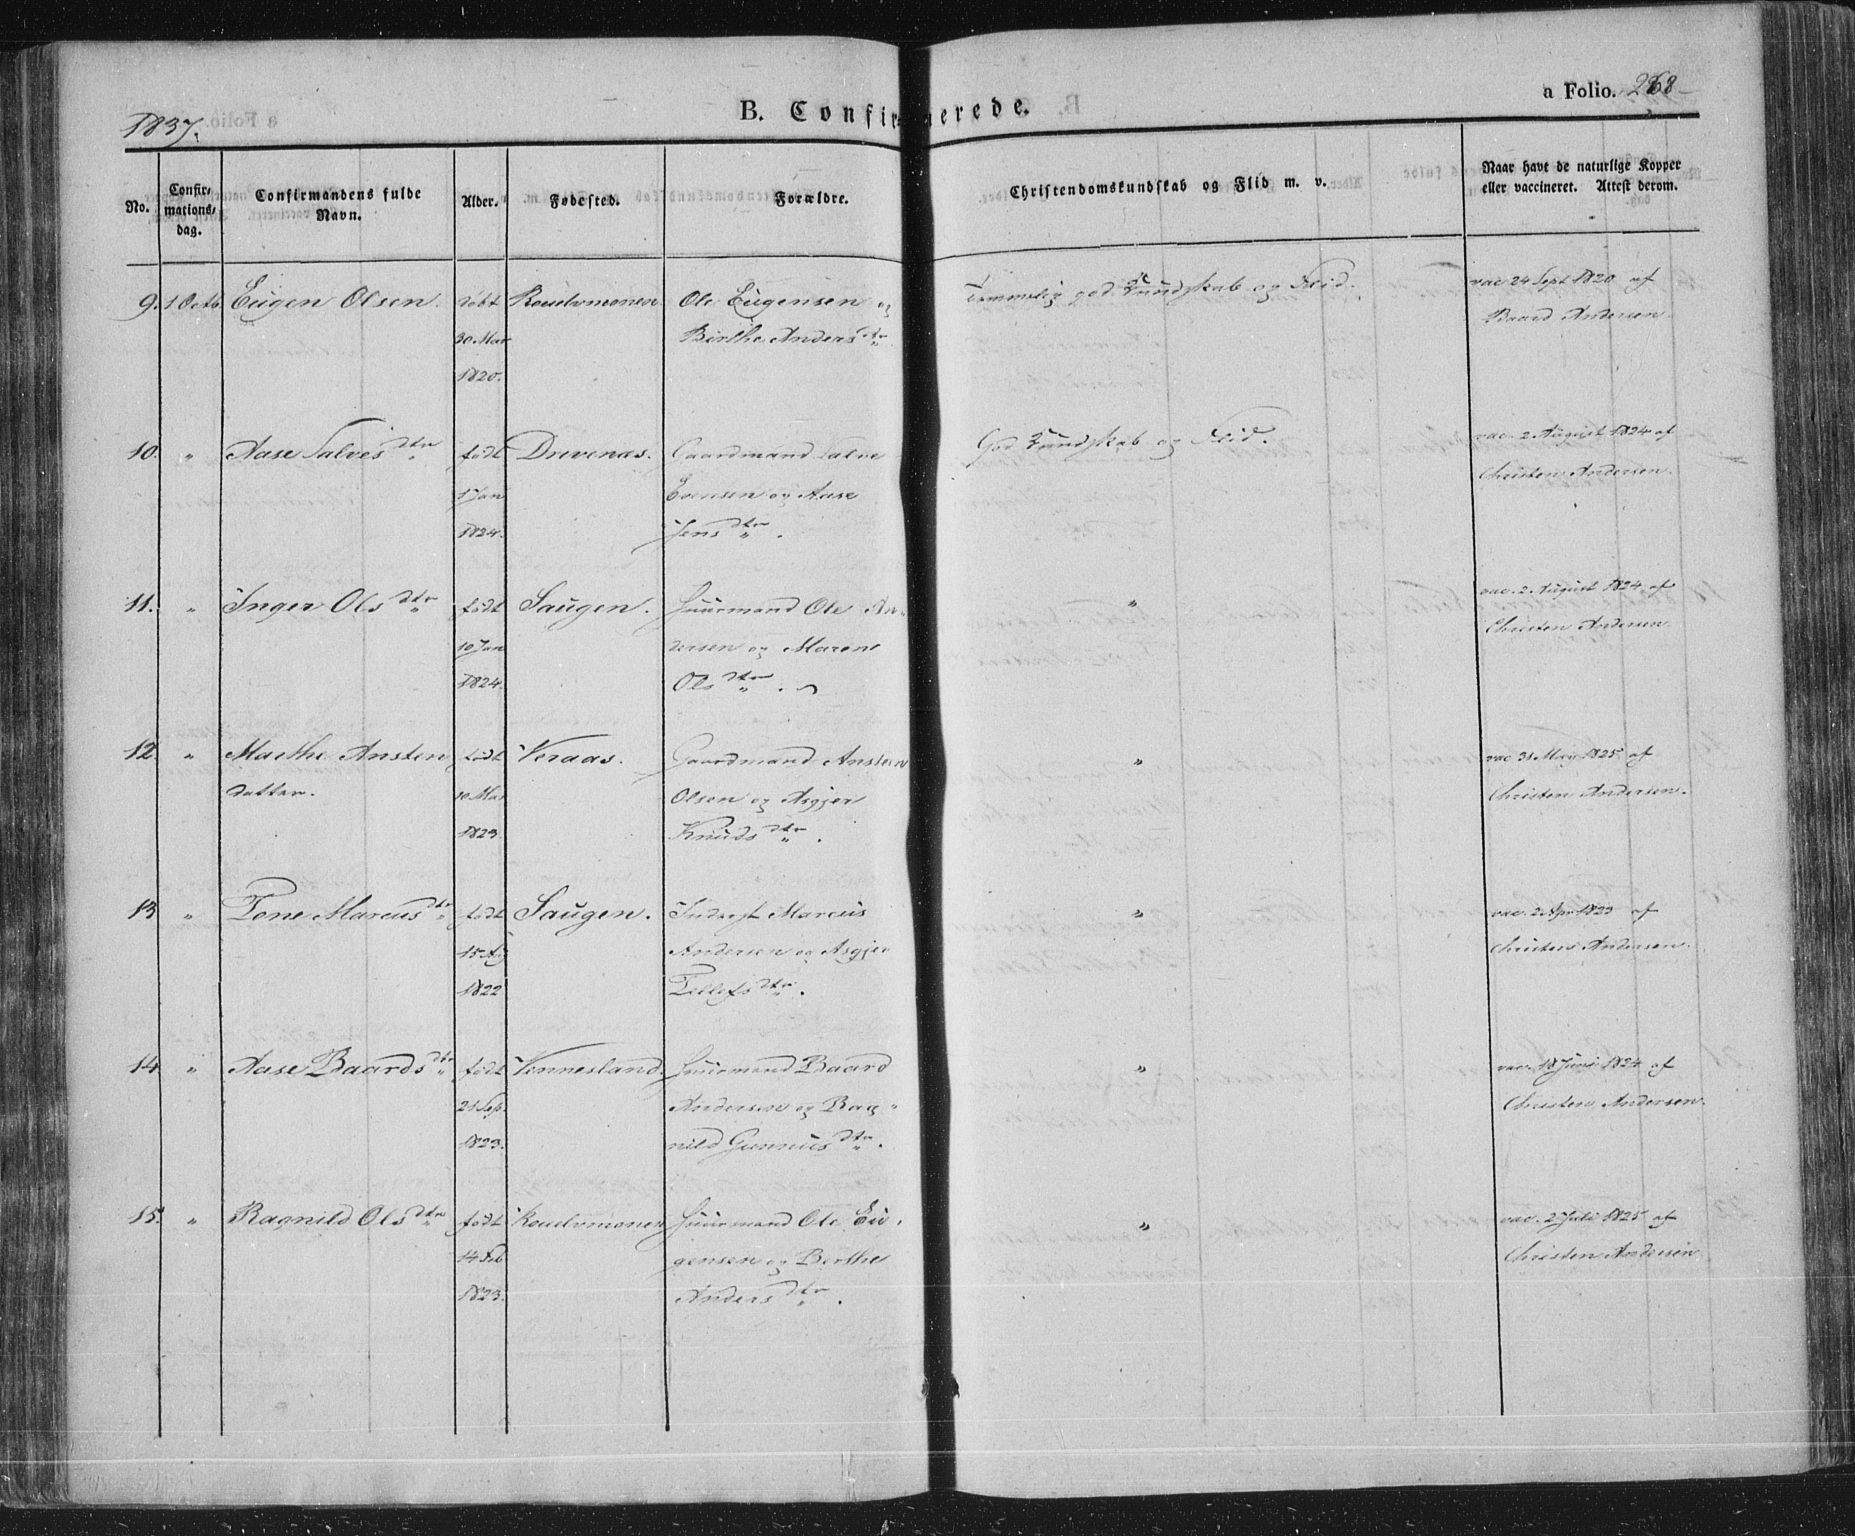 1837.
B. Confirmerede.
a Folio. 268
No.
Confir-
mations-
dag.
Confirmandens fulde
Navn.
Alder.
Fødested.
Forældre.
Christendomskundskab og Flid m. v.
Naar havt de naturlige Kopper
eller vaccineret. Attest derom.
9. 1 Octb Eugen Olsen. døbt Ole Eugensen og Temmelig god Kundskab og Flid. vac 24 Sept 1820 af
30 Mar Birthe Andersdtr Baard Andersen
1820.
10. " Aase Salvesdtr født Drevenæs. Gaardmand Salve God Kundskab og Flid. vac. 2 August 1824 af
1 Jan Evensen og Aase Christen Andersen.
1824. Jensdtr.
11. " Inger Olsdtr født Saugen. Huusmand Ole An- " vac. 2 August 1824 af
10 Jan dersen og Maren Christen Andersen
1824. Olsdtr.
12. " Marthe Ansten født Veraas. Gaardmand Ansten " vac 31 May 1825 af
datter. 10 Mar Olsen og Asgjer Christen Andersen.
1823. Knudsdtr.
13 " Tone Marcusdtr født Saugen. Inderst Marcus " vac. 2 Apr 1823 af
15 Aug Andersen og Asgjer Christen Andersen.
1822 Tellefsdtr.
14 " Aase Baardsdtr født Vennesland. Huusmand Baard " vac. 18 Juni 1824 af
21 Sep. Andersen og Rag- Christen Andersen.
1823. nild Gunnusdtr.
15. " Ragnild Olsdtr født Huusmand Ole Eu- " vac. 2 Juli 1825 af
14 Feb gensen og Berthe Christen Andersen
1823. Andersdtr.